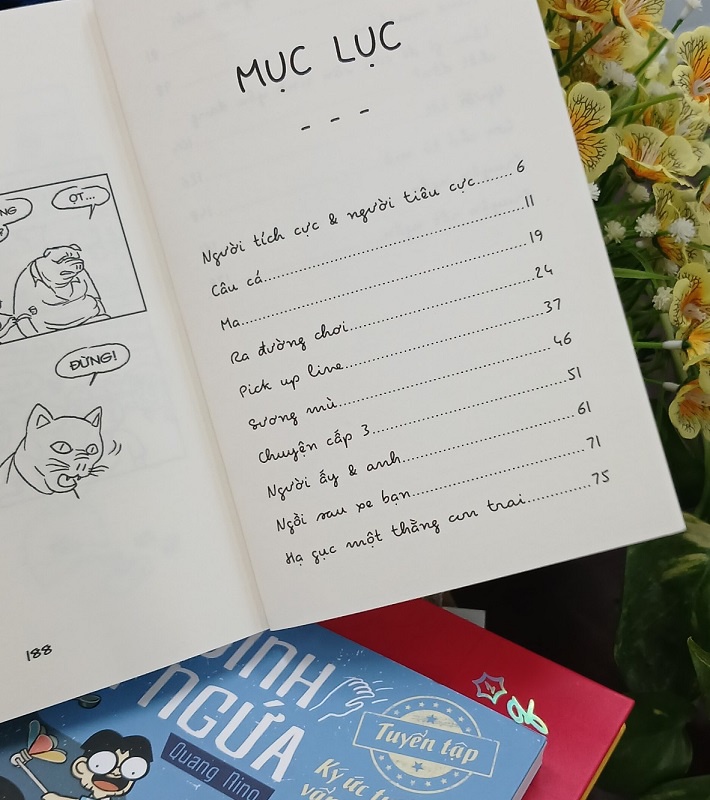 ỌT...
ĐỪNG!
188
MỤC LỤC
- - -
Người tích cực & người tiêu cực....... 6
Câu cá................................ 11
Ma................................ 19
Ra đường chơi................................ 24
Pick up line................................ 37
Sương mù................................ 46
Chuyện cấp 3................................ 51
Người ấy & anh................................ 61
Ngồi sau xe bạn................................ 71
Hạ gục một thằng con trai............ 75
NGỨA
Quang Ning
Tuyển tập
Ký ức